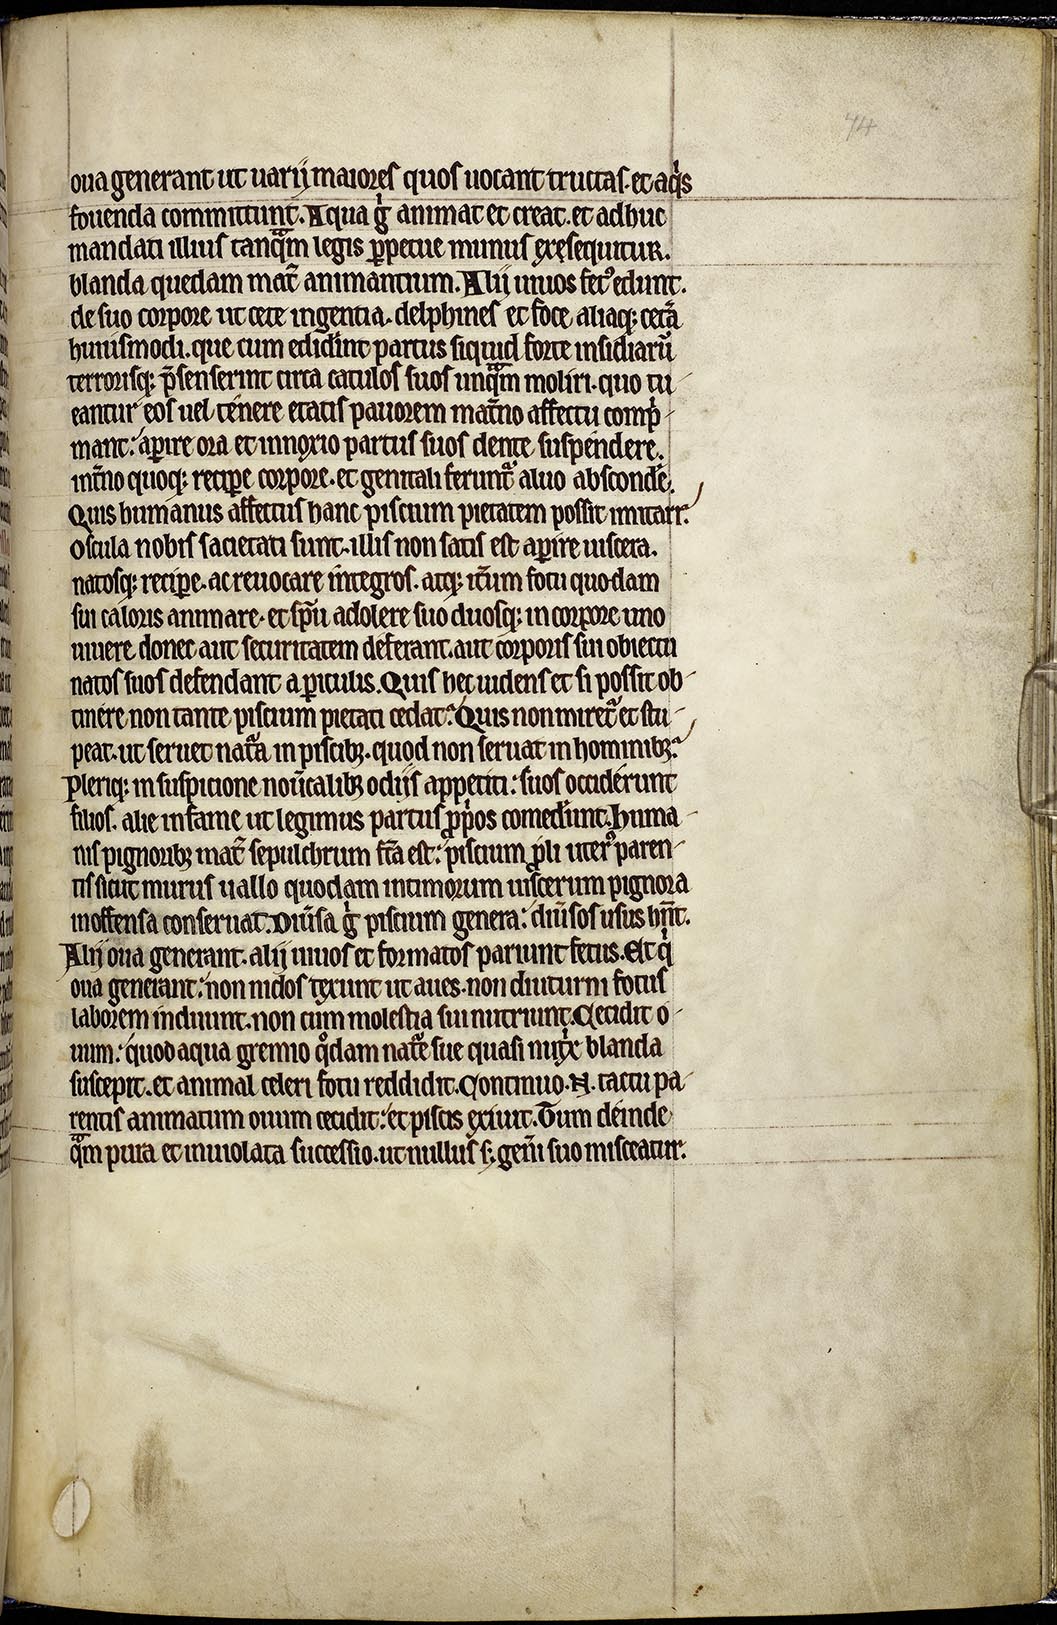 74
oua generant ut uarij maiores quos uocant tructas. et aqͥs
fouenda committunt. Aqua gͥ animat et creat. et adhuc
mandati illius tanqᵃm legis ꝑpetue munus exsequitur.
blanda quedam mat̄ animantium. Alij uiuos fet᾽ edunt.
de suo corpore ut cete ingentia. delphines et foce aliaq; cet̄a
huiusmodi. que cum ediderint partus siquid forte insidiarū
terrorisq; p̄senserint circa catulos suos unqᵃm moliri. quo tu-
eantur eos uel tenere etatis pauorem mat̄no affectu compͥ-
mant: aꝑire ora et innoxio partus suos dente suspendere.
int̄no quoq; reciꝑe corpore. et genitali feruntᷣ aluo absconde᷑.
Quis humanus affectus hanc piscium pietatem possit imitari᷑.
Oscula nobis sacietati sunt. illis non satis est aꝑire uiscera.
natosq; reciꝑe. ac reuocare integros. atq; it̄um fotu quodam
sui caloris animare. et sp̄u adolere suo duosq; in corpore uno
uiuere donec aut securitatem deferant. aut corporis sui obiectu
natos suos defendant a ꝑiculis. Quis hec uidens et si possit ob-
tinere non tante piscium pietati cedat? Quis non miretᷣ et stu-
peat. ut seruet natᷓa in piscibꝫ. quod non seruat in hominibꝫ?
Pleriq; in suspicione nou̅calibꝫ odijs appetiti: suos occiderunt
filios. alie in fame ut legimus partus ꝓpͥos comederunt. huma-
nis pignoribꝫ mat̄ sepulchrum fc̄a est: piscium ꝓli uter᾽ paren-
tis sicut murus uallo quodam intimorum uiscerum pignora
inoffensa conseruat. Diu̅sa gͥ piscium genera: diu̅sos usus hn̅t.
Alij oua generant. alij uiuos et formatos pariunt fetus. Et qͥ
oua generant: non nidos texunt ut aues. non diuturni fotus
laborem induunt. non cum molestia sui nutriunt. Cecidit o-
uum: quod aqua gremio qͦdam nat᷑e sue quasi nutͥx blanda
suscepit. et animal celeri fotu reddidit. Continuo .N. tactu pa-
rentis animatum ouum cecidit: et piscis exiuit. Tum deinde
qᵃm pura et inuiolata successio. ut nullus s; gen̅i suo misceatur.